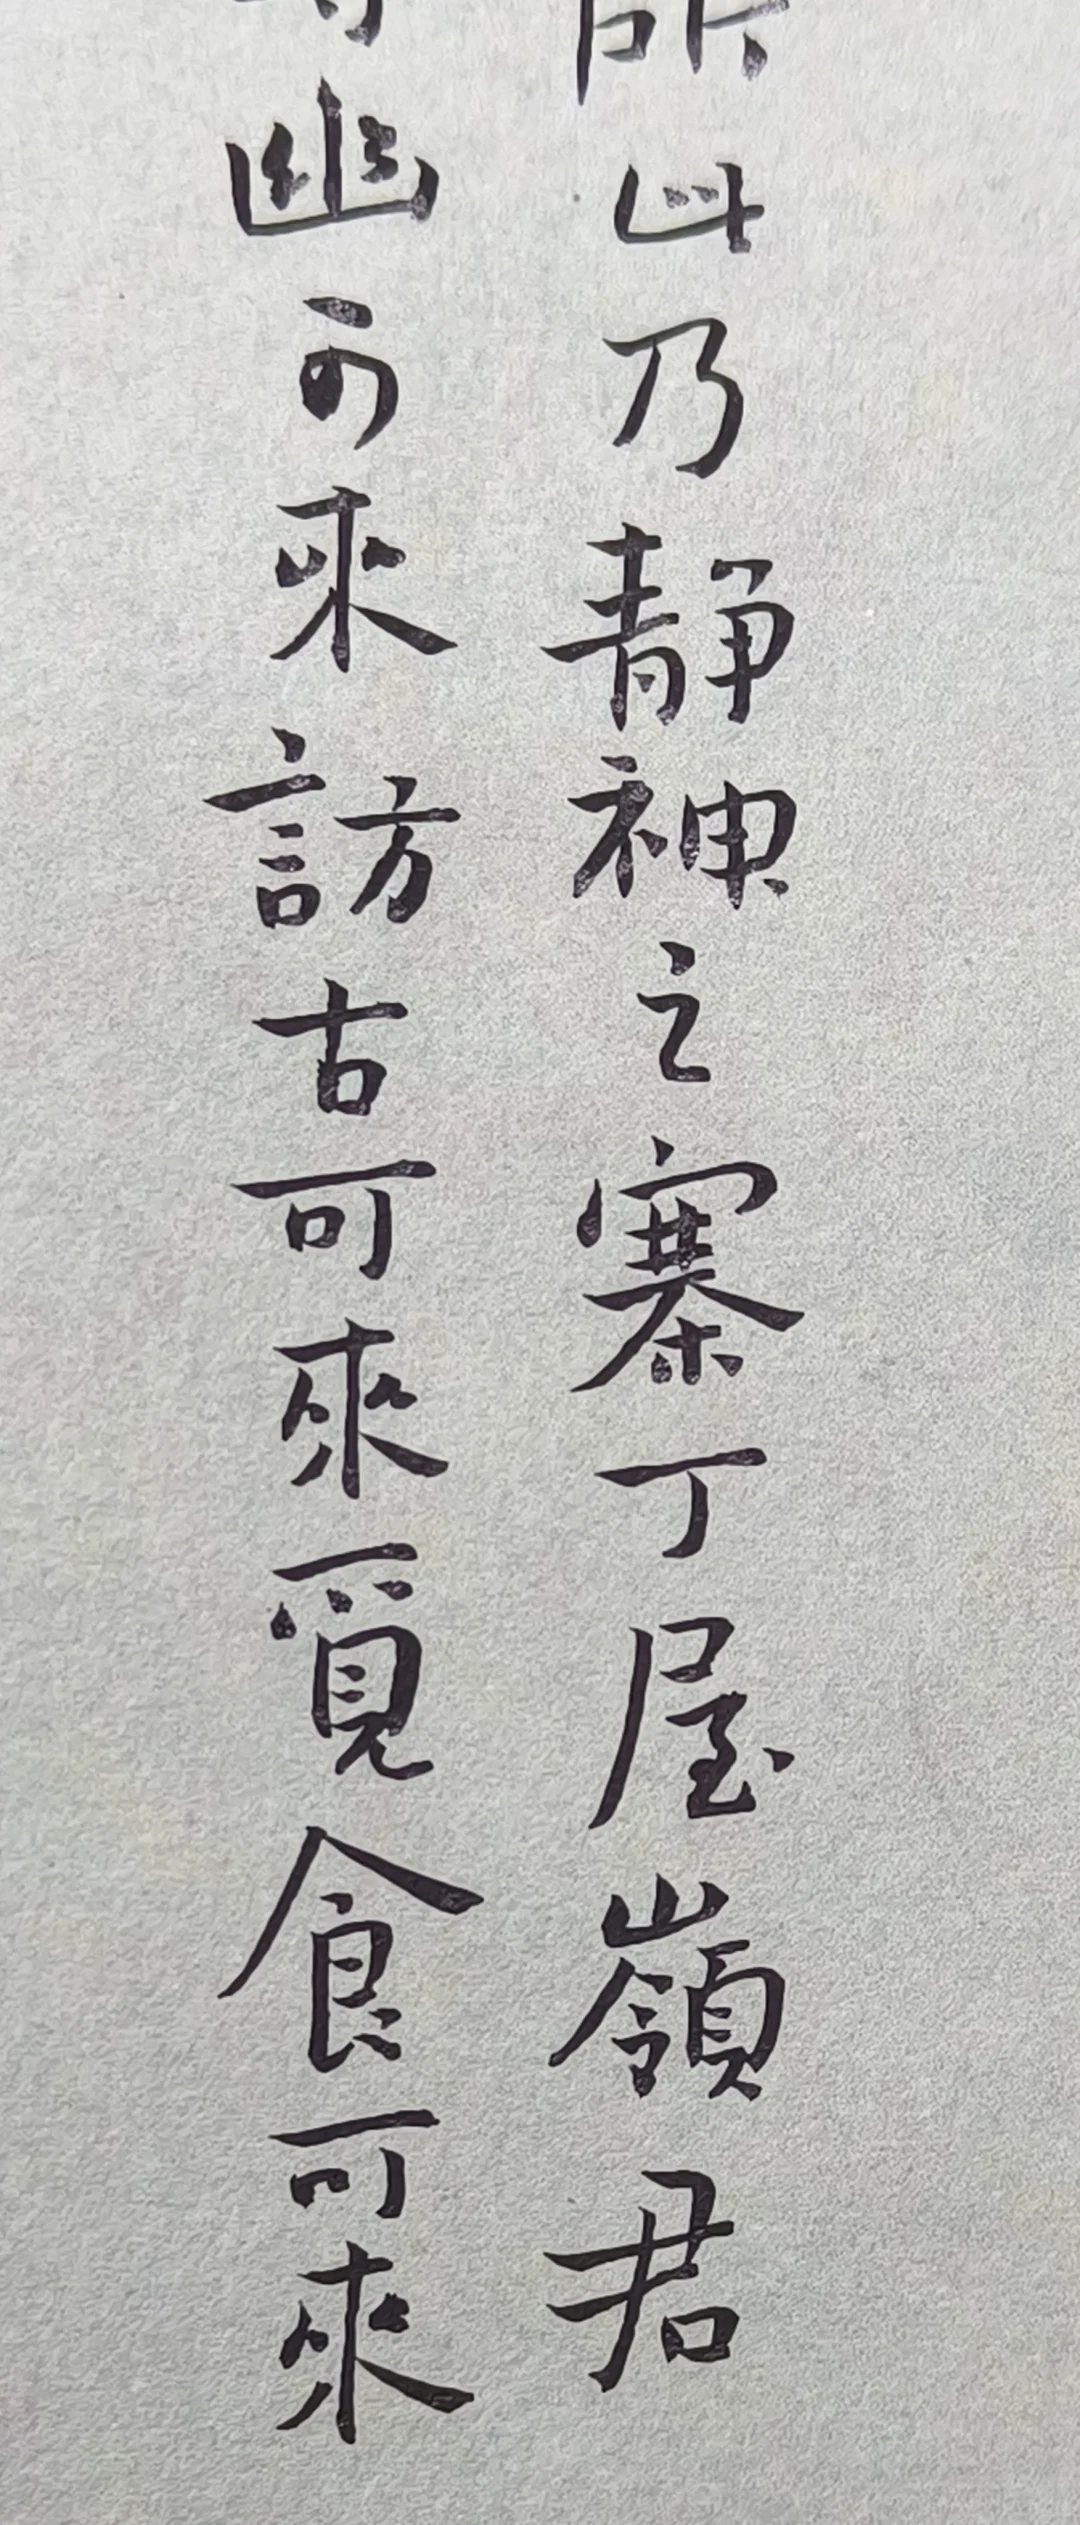 此乃靜神之寨丁屋嶺君
幽可來訪古可來覓食可來